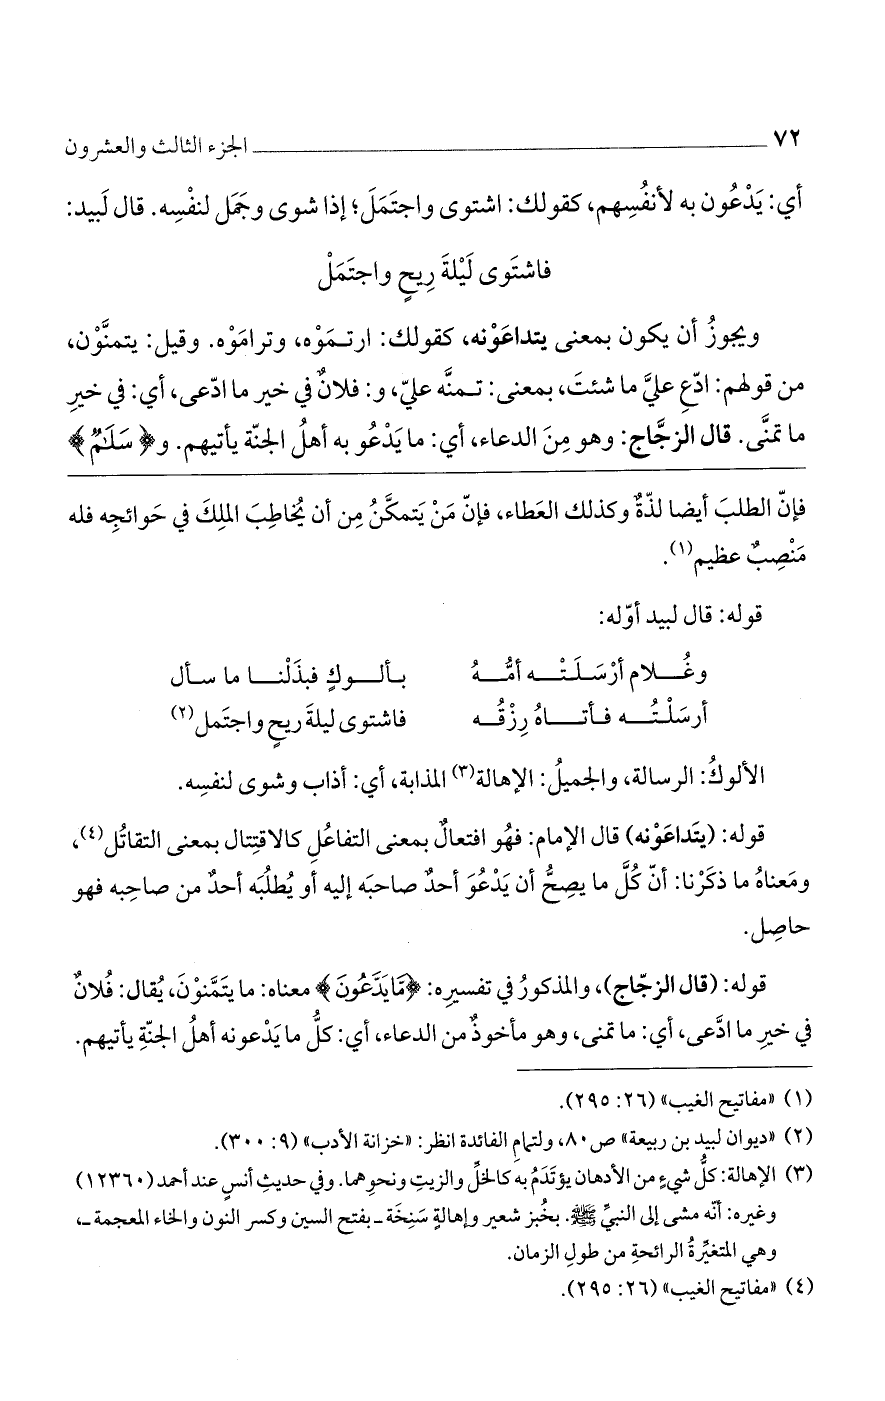 ٧٢ الجزء الثالث والعشرون
أي: يَدْعُون به لأنفُسِهم، كقولك: اشتوى واجتَمَلَ؛ إذا شوى وجَمَل لنفْسِه. قال لَبيد:
فاشتَوى لَيْلةَ رِيحٍ واجتَمَلْ
ويجوزُ أن يكون بمعنى يتداعَوْنه، كقولك: ارتـمَوْه، وترامَوْه. وقيل: يتمنَّوْن،
من قولهم: ادّعِ عليَّ ما شئتَ، بمعنى: تـمنَّه عليّ، و: فلانٌ في خير ما ادّعى، أي: في خيرِ
ما تمنَّى. قال الزجَّاج: وهو مِنَ الدعاء، أي: ما يَدْعُو به أهلُ الجنّة يأتيهم. و﴿سَلَـٰمٌ﴾
فإنّ الطلبَ أيضا لذّةٌ وكذلك العَطاء، فإنّ مَنْ يَتمكَّنُ مِن أن يُخاطِبَ الملِكَ في حَوائجِه فله
مَنْصِبٌ عظيم(١).
قوله: قال لبيد أوّله:
وغُـــلام أرْسَـلَـتْـــه أمُّـــهُ بـألـــوكٍ فبذَلْنـــا ما سـأل
أرسَلْتُـــه فـأتـــاهُ رِزْقُـــه فاشتوى ليلةَ ريحٍ واجتَمل(٢)
الألوكُ: الرسالة، والجميلُ: الإهالة(٣) المذابة، أي: أذاب وشوى لنفسِه.
قوله: (يتداعَوْنه) قال الإمام: فهُو افتعالٌ بمعنى التفاعُلِ كالاقتِتال بمعنى التقاتُل(٤)،
ومَعناهُ ما ذكَرْنا: أنّ كُلَّ ما يصِحُّ أن يَدْعُوَ أحدٌ صاحبَه إليه أو يُطلُبَه أحدٌ من صاحِبه فهو
حاصِل.
قوله: (قال الزجّاج)، والمذكورُ في تفسيرِه: ﴿مَّا يَدَّعُونَ﴾ معناه: ما يتَمَّنوْنَ، يُقال: فُلانٌ
في خيرِ ما ادَّعى، أي: ما تمنى، وهو مأخوذٌ من الدعاء، أي: كلُّ ما يَدْعونه أهلُ الجنّةِ يأتيهم.
(١) «مفاتيح الغيب» (٢٦: ٢٩٥).
(٢) «ديوان لبيد بن ربيعة» ص٨٠، ولتمامِ الفائدة انظر: «خزانة الأدب» (٩: ٣٠٠).
(٣) الإهالة: كلُّ شيءٍ من الأدهان يؤتَدَمُ به كالخلِّ والزيتِ ونحوِهما. وفي حديثِ أنسٍ عند أحمد (١٢٣٦٠)
وغيره: أنّه مشى إلى النبيِّ ﷺ. بخُبزِ شعير وإهالةٍ سَنِخَة ـ بفتح السين وكسر النون والخاء المعجمة ـ،
وهي المتغيِّرةُ الرائحةِ من طولِ الزمان.
(٤) «مفاتيح الغيب» (٢٦: ٢٩٥).